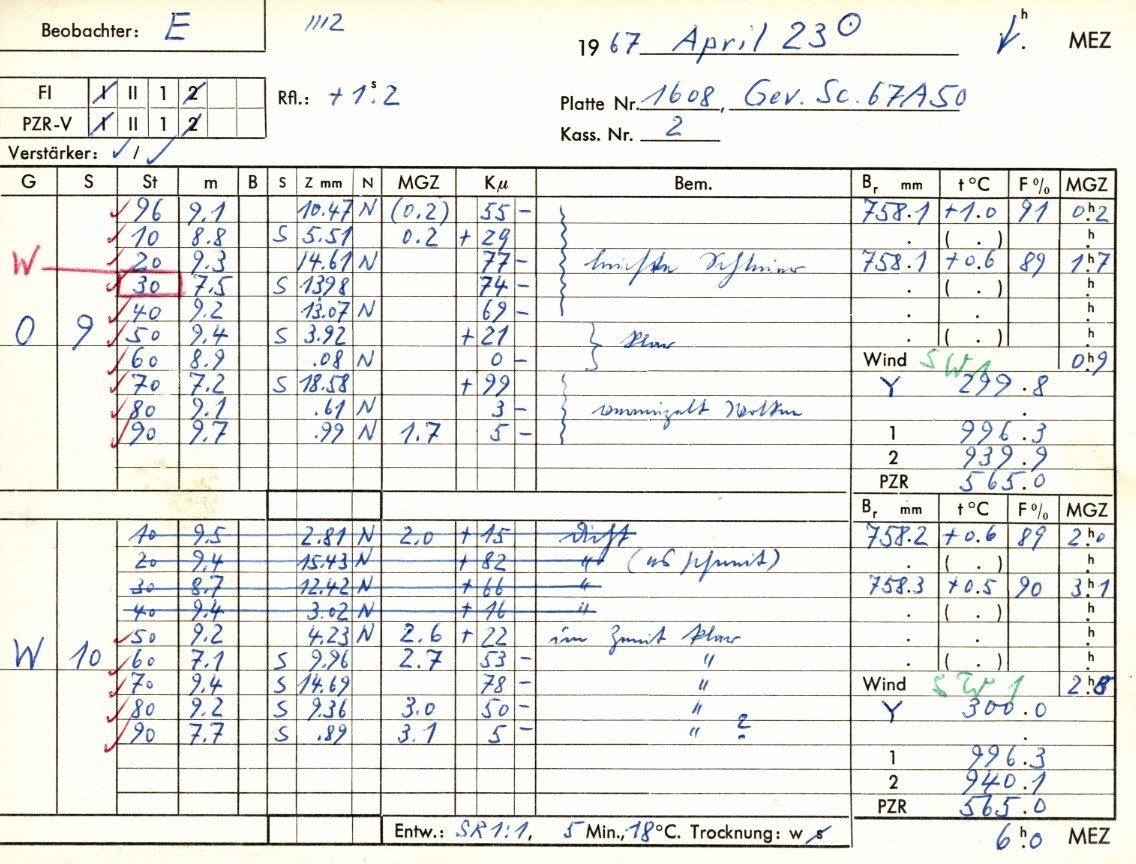 Beobachter: E 1112
1967 April 23 ⊙ h. MEZ
FI I II 1 2 Rfl.: +1ˢ.2
Platte Nr. 1608, Gev. Sc. 67A50
PZR-V I II 1 2
Kass. Nr. 2
Verstärker: ✓ / ✓
G S St m B S Z mm N MGZ Kμ Bem. Br mm t°C F% MGZ
96 9.1 10.47 N (0.2) 55 - 758.1 +1.0 91 0h.2
10 8.8 S 5.51 0.2 + 29 . ( . ) h.
W 20 9.3 14.61 N 77 - leichte Schleier 758.1 +0.6 89 1h.7
30 7.5 S 1398 74 - . ( . ) h.
40 9.2 13.07 N 69 - . . h.
O 9 50 9.4 S 3.92 + 21 klar . ( . ) h.
60 8.9 .08 N 0 - Wind SW 1 0h.9
70 7.2 S 18.58 + 99 Y 299.8
80 9.1 .61 N 3 - Wolken .
90 9.7 .99 N MGZ 1.7 5 - 1 996.3
2 939.9
PZR 565.0
Br mm t°C F% MGZ
10 9.5 2.81 N 2.0 + 15 Dicht 758.2 +0.6 89 2h.0
20 9.4 15.43 N + 82 " . ( . ) h.
30 8.7 12.42 N + 66 " 758.3 +0.5 90 3h.1
40 9.4 3.02 N + 16 " . ( . ) h.
50 9.2 4.23 N 2.6 + 22 im Zenit klar . . h.
W 10 60 7.1 S 9.96 2.7 53 - " . ( . ) h.
70 9.4 S 14.69 78 - " Wind SW 1 2h.8
80 9.2 S 9.36 3.0 50 - " Y 300.0
90 7.7 S .89 3.1 5 - " ? .
1 996.3
2 940.1
PZR 565.0
Entw.: SR1:1, 5 Min., 18°C. Trocknung: w s 6h.0 MEZ